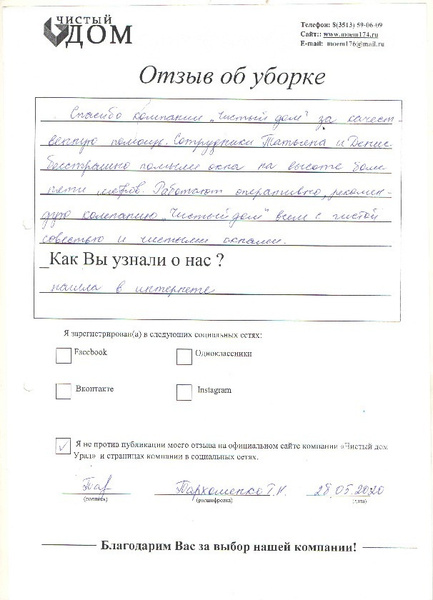 ЧИСТЫЙ
ДОМ
Телефон: 8(3513) 59-06-09
Сайт:: www.moem174.ru
E-mail: moem176@mail.ru
Отзыв об уборке
Спасибо компании „Чистый дом" за качест-
венную помощь. Сотрудники Татьяна и Денис
бесстрашно помыли окна на высоте более
пяти метров. Работают оперативно, рекомен-
дую компанию „Чистый дом" всем с чистой
совестью и чистыми окнами.
_Как Вы узнали о нас ?
нашла в интернете
Я зарегистрирован(а) в следующих социальных сетях:
Facebook
Одноклассники
Вконтакте
Instagram
Я не против публикации моего отзыва на официальном сайте компании «Чистый дом
Урал» и страницах компании в социальных сетях.
Тар Пархоменко Т.И. 28.05.2020
(подпись) (расшифровка) (дата)
Благодарим Вас за выбор нашей компании!